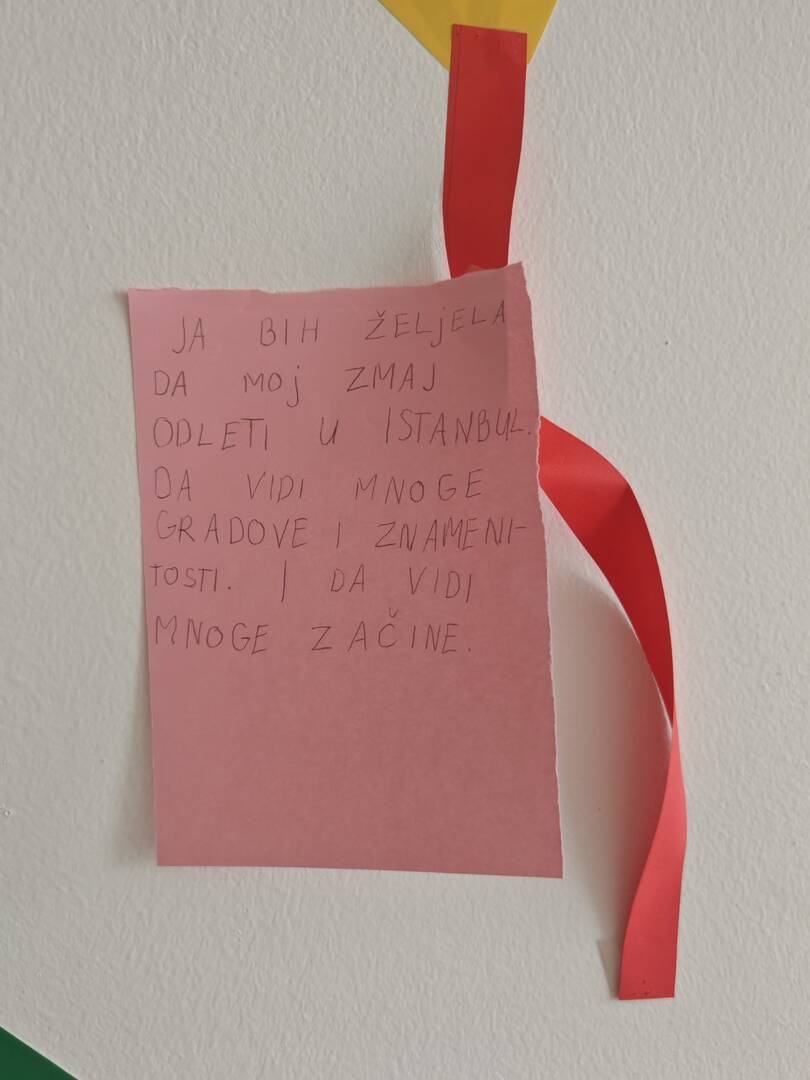 JA BIH ŽELjELA
DA MOj ZMAJ
ODLETI U ISTANBUL.
DA VIDI MNOGE
GRADOVE I ZNAMENI-
TOSTI. I DA VIDI
MNOGE ZAČINE.